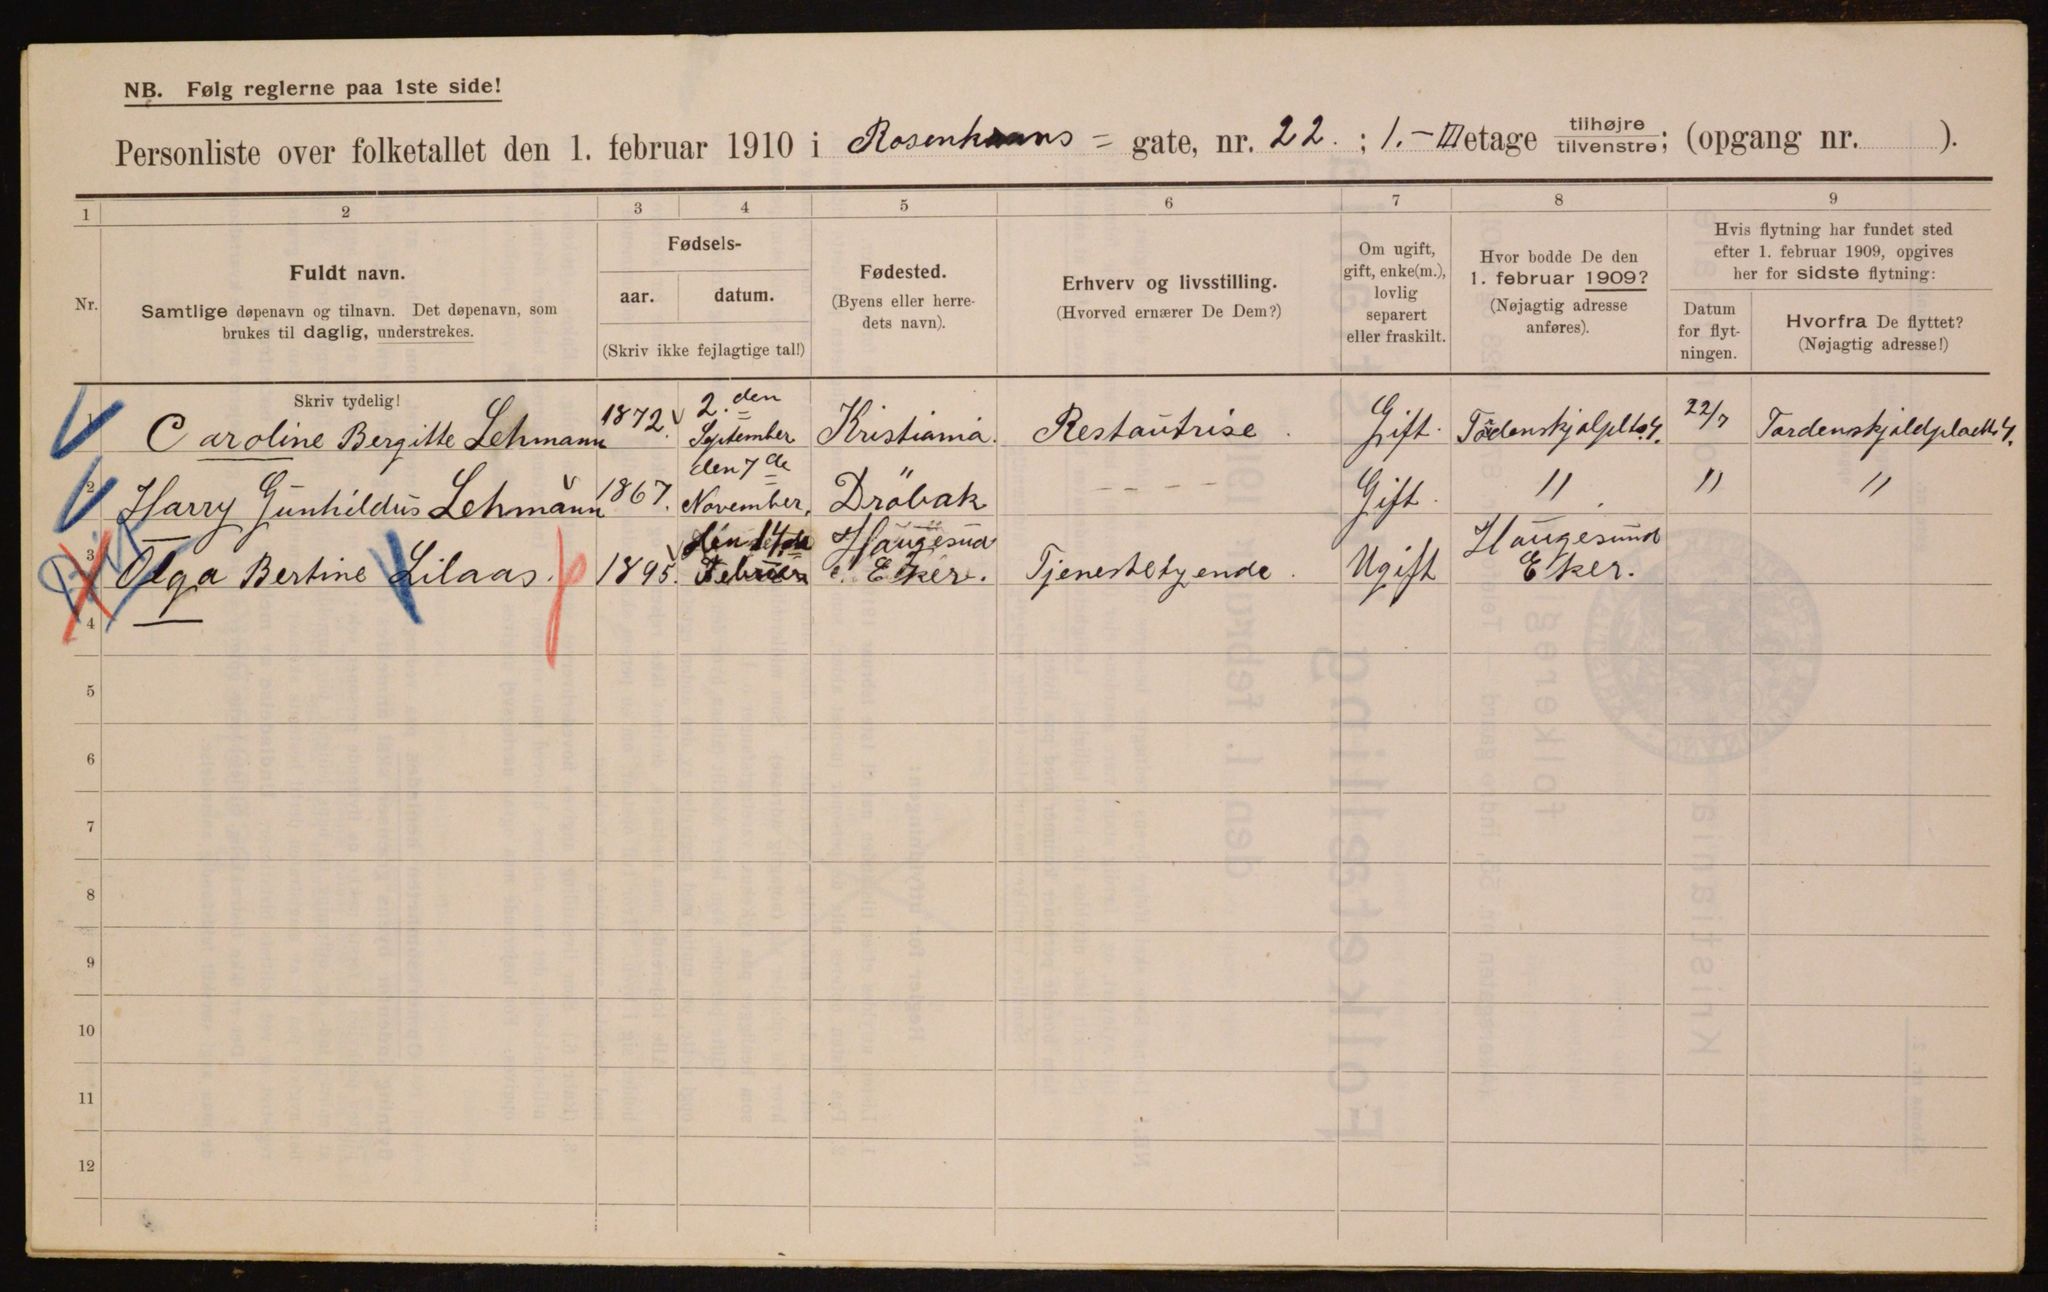 NB. Følg reglerne paa 1ste side!
Personliste over folketallet den 1. februar 1910 i Rosenkrans = gate, nr. 22. ; 1. - III etage tilhøjre tilvenstre; (opgang nr. ).
1 2 3 4 5 6 7 8 9
Nr.
Fuldt navn.
Samtlige døpenavn og tilnavn. Det døpenavn, som
brukes til daglig, understrekes.
Skriv tydelig!
Fødsels-
aar. datum.
(Skriv ikke fejlagtige tal!)
Fødested.
(Byens eller herre-
dets navn).
Erhverv og livsstilling.
(Hvorved ernærer De Dem?)
Om ugift,
gift, enke(m.),
lovlig
separert
eller fraskilt.
Hvor bodde De den
1. februar 1909?
(Nøjagtig adresse
anføres).
Hvis flytning har fundet sted
efter 1. februar 1909, opgives
her for sidste flytning:
Datum
for flyt-
ningen.
Hvorfra De flyttet?
(Nøjagtig adresse!)
1 Caroline Bergitte Lehmann 1872. 2. den September Kristiania. Restautrise. Gift. 22/7
2 Harry Gunhildus Lehmann 1867. den 7de November. Dröbak - - - - Gift. " " "
3 Olga Bertine Lilaas. 1895. den 14.de Februar Haugesund Eker. Tjenestetyende. Ugift Haugesund Eker.
4
5
6
7
8
9
10
11
12